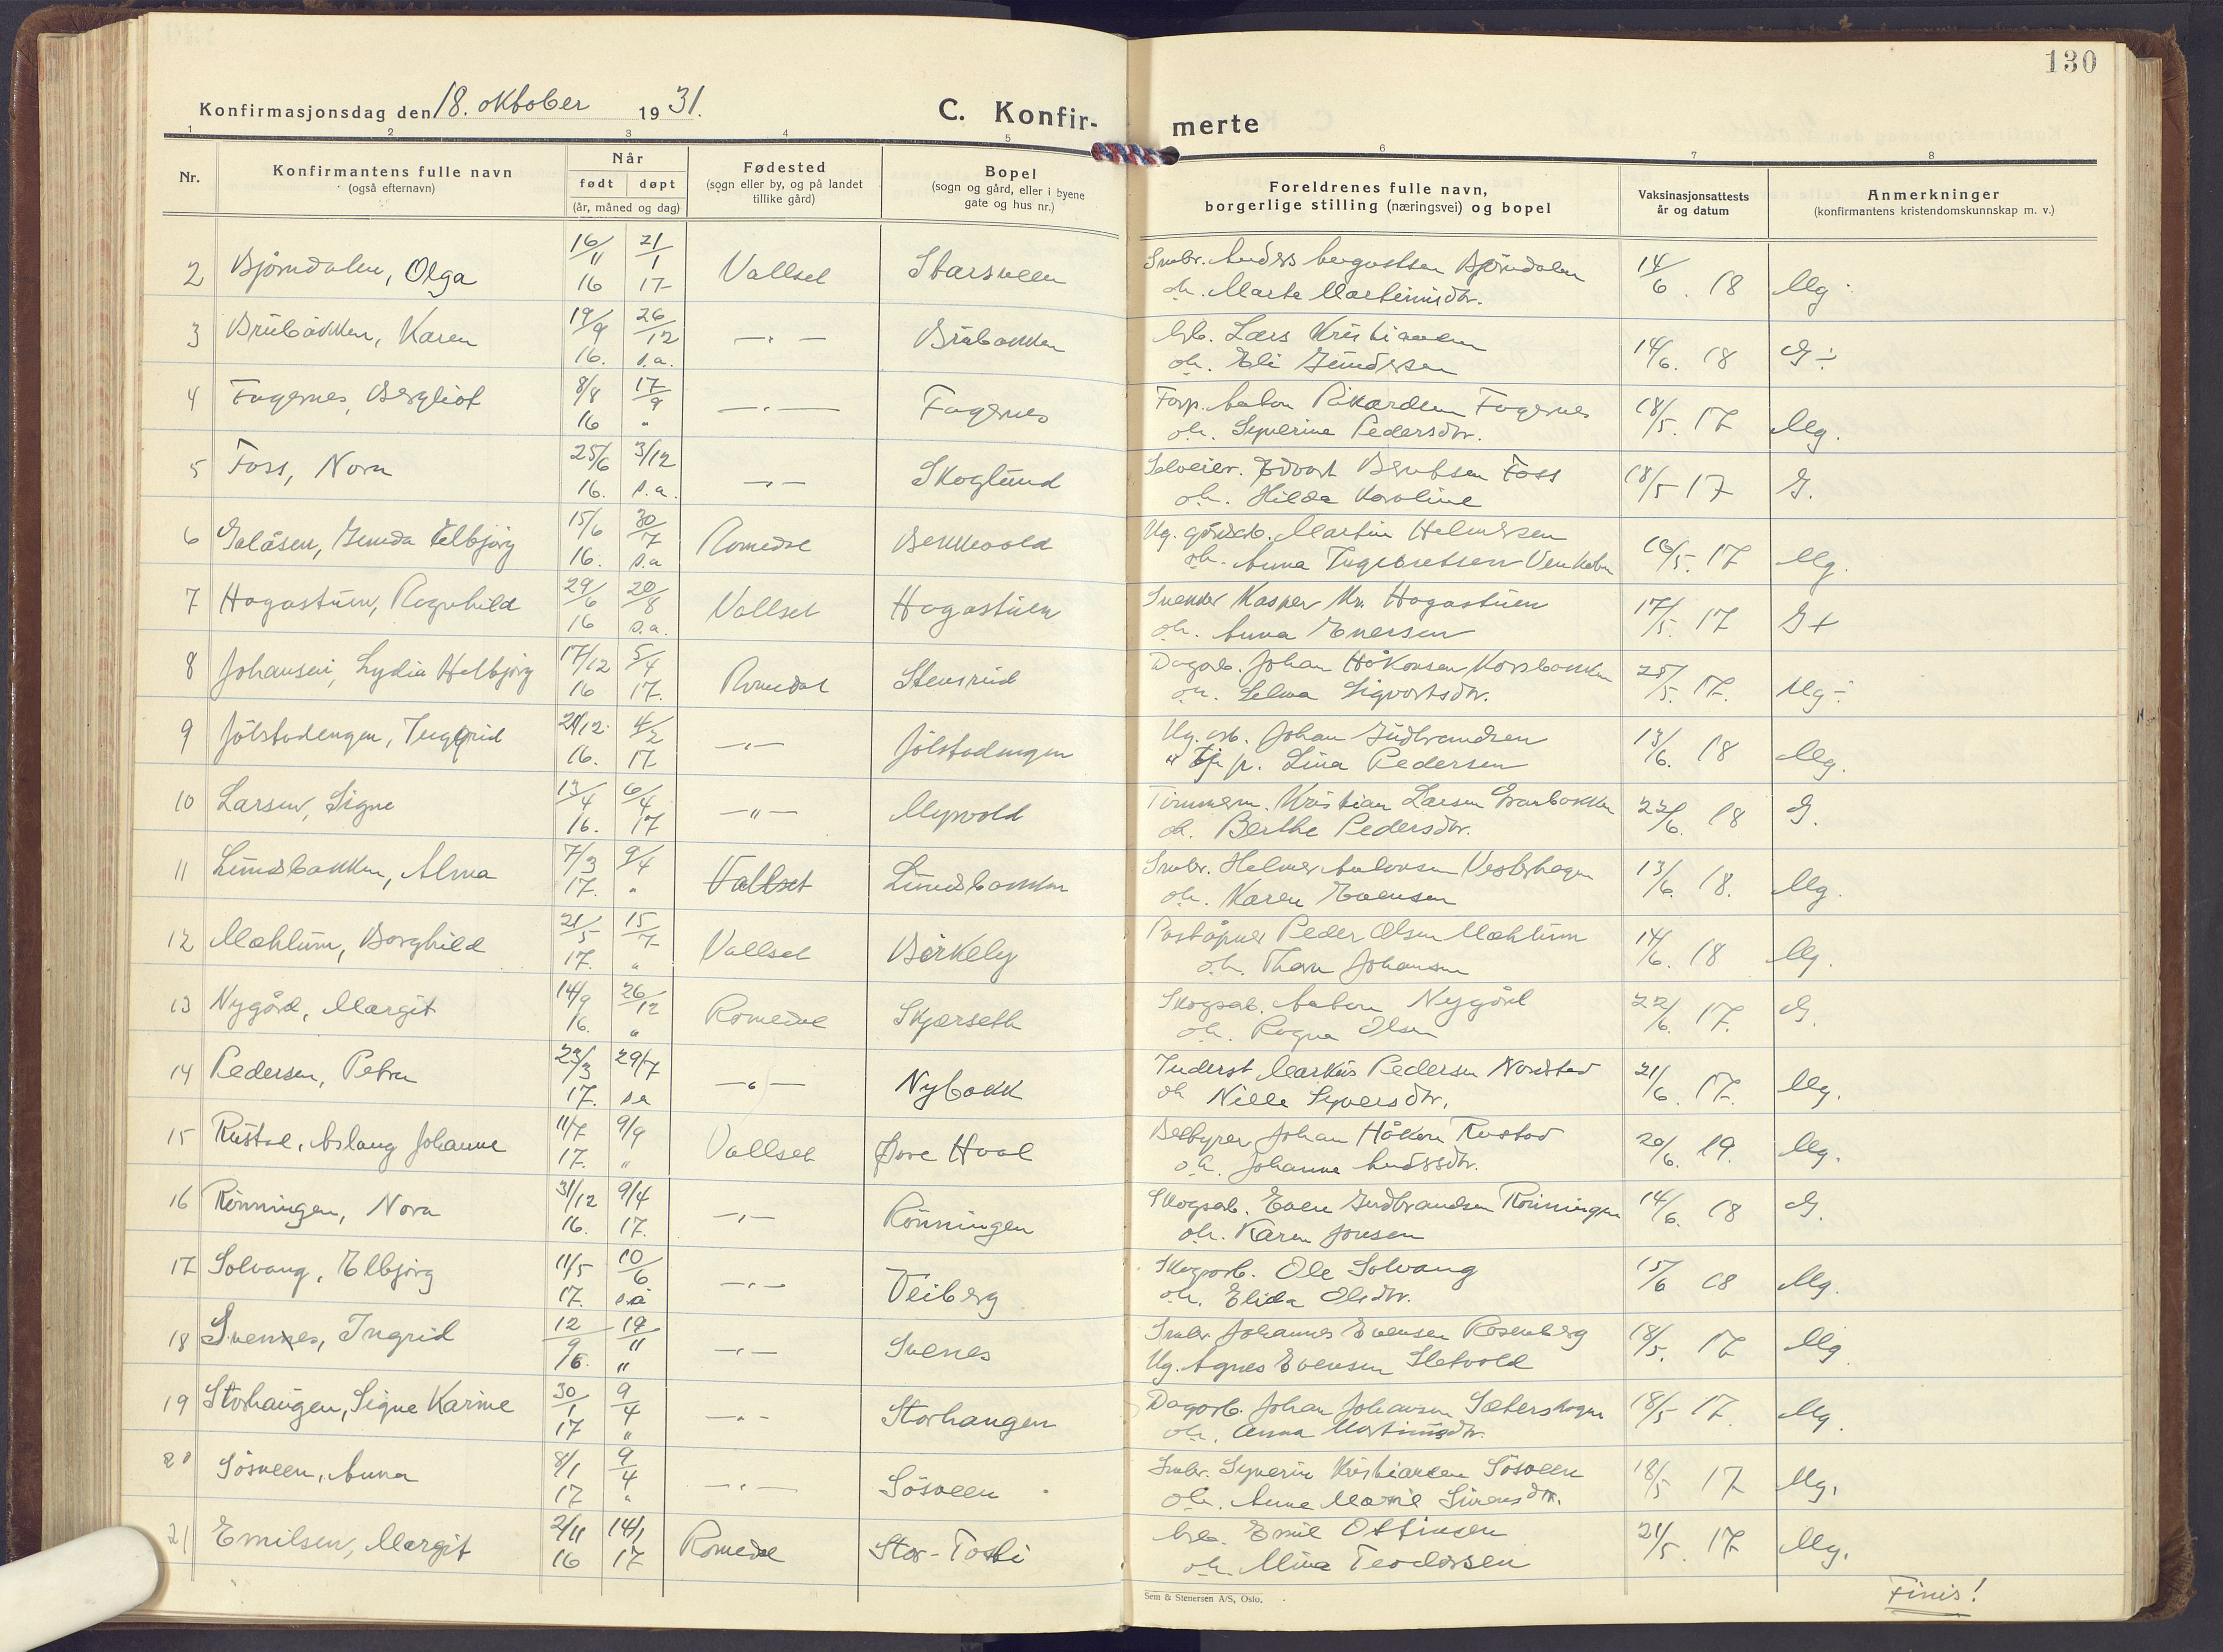 130
Konfirmasjonsdag den 18. oktober 1931.
C. Konfir-
merte
1 2 3 4 5 6 7 8
Nr.
Konfirmantens fulle navn
(også efternavn)
Når
født døpt
(år, måned og dag)
Fødested
(sogn eller by, og på landet
tillike gård)
Bopel
(sogn og gård, eller i byene
gate og hus nr.)
Foreldrenes fulle navn,
borgerlige stilling (næringsvei) og bopel
Vaksinasjonsattests
år og datum
Anmerkninger
(konfirmantens kristendomskunnskap m. v.)
2 Bjørndalen, Olga 16/11 16 21/1 17 Vallset Starsveen Smbr. Anders Bjørndalen 14/6. 18 Mg ÷
oh. Marte Martinusdtr.
3 Brubakken, Karen 19/9 16. 26/12 s.a. —"— Brubakken Lars Kristiansen 14/6. 18 G ÷
oh. Eli Gundersen
4 Fagernes, Bergliot 8/8 16 17/9 " —"— Fagernes Forp. Anton Rikardsen Fagernes 18/5. 17 Mg.
oh. Syverine Pedersdtr.
5 Foss, Nora 25/6 16. 3/12 s.a. —"— Skoglund Edvart Berntsen Foss 18/5 17 G.
oh. Hilda Karoline
6 Galåsen, Gunda Elbjørg 15/6 16. 30/7 s.a Romedal Bekkevold Ug. gårdarb. Martin Helmersen 16/5. 17 Mg.
oh. Anna
7 Hagastuen, Ragnhild 29/6 16 20/8 s.a. Vallset Hagastuen Kasper Kr. Hagastuen 17/5. 17 G +
oh. Anna Enersen
8 Johansen, Lydia Helbjørg 17/12 16 5/4 17. Romedal Stensrud Dagarb. Johan Håkonsen Korsbakken 25/5. 17. Mg ÷
oh. Selma Sigvartsdtr.
9 Jølstadengen, Inggrid 21/12 16. 4/2 17 —"— Jølstadengen Ug. arb. Johan Gudbrandsen 13/6. 18 Mg.
" tj. p. Lina Pedersen
10 Larsen, Signe 13/4 16. 6/4 17 —"— Myrvold Tømmerm. Kristian Larsen Granbakken 22/6. 18 G.
oh. Berthe Pedersdtr.
11 Lundsbakken, Alma 7/3 17. 9/4 " Vallset Lundsbakken Smbr. Helmer Antonsen Vesterhagen 13/6. 18. Mg.
oh. Karen Evensen
12 Mæhlum, Borghild 21/5 17. 15/7 " Vallset Birkely Poståpner Peder Olsen Mæhlum 14/6. 18 Mg.
oh. Thora Johansen
13 Nygård, Margit 14/9 16. 26/12 " Romedal Skjærseth Skogsarb. Anton Nygård 22/6. 17. G.
oh. Ragna Olsen
14 Pedersen, Petra 23/3 17. 29/7 s.a —"— Nybakk Inderst Markus Pedersen Nordstad 21/6. 17. Mg.
oh Nille Syversdtr.
15 Rustad, Aslaug Johanne 11/7 17. 9/9 " Vallset Øvre Hval Bestyrer Johan Håken Rustad 20/6. 19. Mg.
oh. Johanne Andersdtr.
16 Rønningen, Nora 31/12 16. 9/4 17. —"— Rønningen Skogsarb. Even Gudbrandsen Rønningen 14/6. 18 G.
oh. Karen Jonsen
17 Solvang, Elbjørg 11/5 17. 10/6 s.a —"— Veiberg Skogsarb. Ole Solvang 15/6 18 Mg.
oh. Elida Olsdtr.
18 Svenes, Ingrid 12/9 16. 19/11 " —"— Svenes Smbr. Johannes Evensen Rosenberg 18/5. 17 Mg
Ug. Agnes Evensen Sletvold
19 Storhaugen, Signe Karine 30/1 17 9/4 " —"— Storhaugen Dagarb. Johan Johansen Sæterskogen 18/5 17. Mg.
oh. Anna Martinusdtr.
20 Søsveen, Anna 8/1 17 9/4 " —"— Søsveen Smbr. Syverin Kristiansen Søsveen 18/5 17 Mg.
oh. Anne Marie Simensdtr.
21 Emilsen, Margit 2/11 16 14/1 17 Romedal Stor-Tosti Emil Ottinsen 21/5. 17 Mg.
oh. Mina Teodorsen
Sem & Stenersen A/S, Oslo.
Finis!